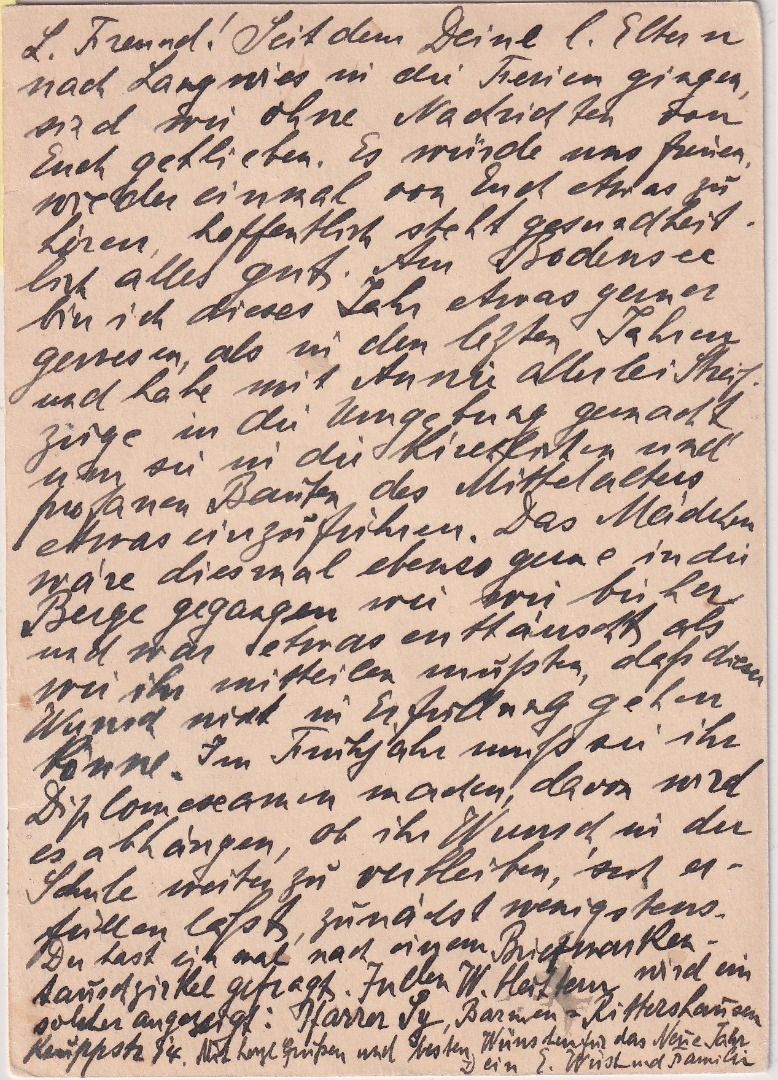 L. Freund! Seit dem Deine l. Eltern
nach Langwies in die Ferien gingen,
sind wir ohne Nachrichten von
Euch geblieben. Es würde uns freuen,
wieder einmal von Euch etwas zu
hören, hoffentlich steht gesundheit-
lich alles gut. Am Bodensee
bin ich dieses Jahr etwas gerner
gewesen, als in den lezten Jahren
und habe mit Annie allerlei Streif-
züge in die Umgebung gemacht
um sie in die kirchlichen und
profanen Bauten des Mittelalters
etwas einzuführen. Das Mädchen
wäre diesmal ebenso gerne in die
Berge gegangen wie wir bisher
und war etwas enttäuscht als
wir ihr mitteilen mußten, daß dieser
Wunsch nicht in Erfüllung gehen
könne. Im Frühjahr muß sie ihr
Diplomexamen machen, davon wird
es abhängen, ob ihr Wunsch, in der
Schule weiter zu verbleiben, sich er-
füllen läßt, zunächst wenigstens.
Du hast ein mal nach einem Briefmarken-
tauschzirkel gefragt. W. wird ein
solcher angezeigt: Pfarrer Sy, Barmen-Rittershausen
Kruppstr 54. Mit herzl Grüßen und besten Wünschen für das Neue Jahr
Dein E. Wüst und Familie